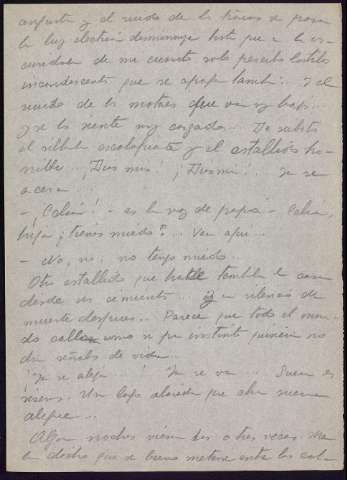 y el ruido de la
la luz eléctrica desmenuza hasta que a la os-
curedad de mi cuarto solo
incandescente que se apaga también. Y el
ruido de los motores que van muy bajos...
y se los siente muy cargados... De súbito
el silbido escalofriante y el estallido ho-
rrible. ¡Dios mío! ¡Dios mío! ya se
acerca...
- ¡ ! - es la voz de papá -
hija ¿tienes miedo? .. Ven aquí...
- No, no, no tengo miedo...
Otro estallido que hace temblar la casa
desde sus cimientos... y un silencio de
muerte después... Parece que todo el mun-
do calla como si por instinto quisiera no
dar señales de vida...
¡Ya se aleja...! Ya se va... Suenan las
sirenas. Una larga alarada que ahora suena
alegre...
Algunas noches vienen dos o tres veces.
la dicha que es bueno meterse entre los col-